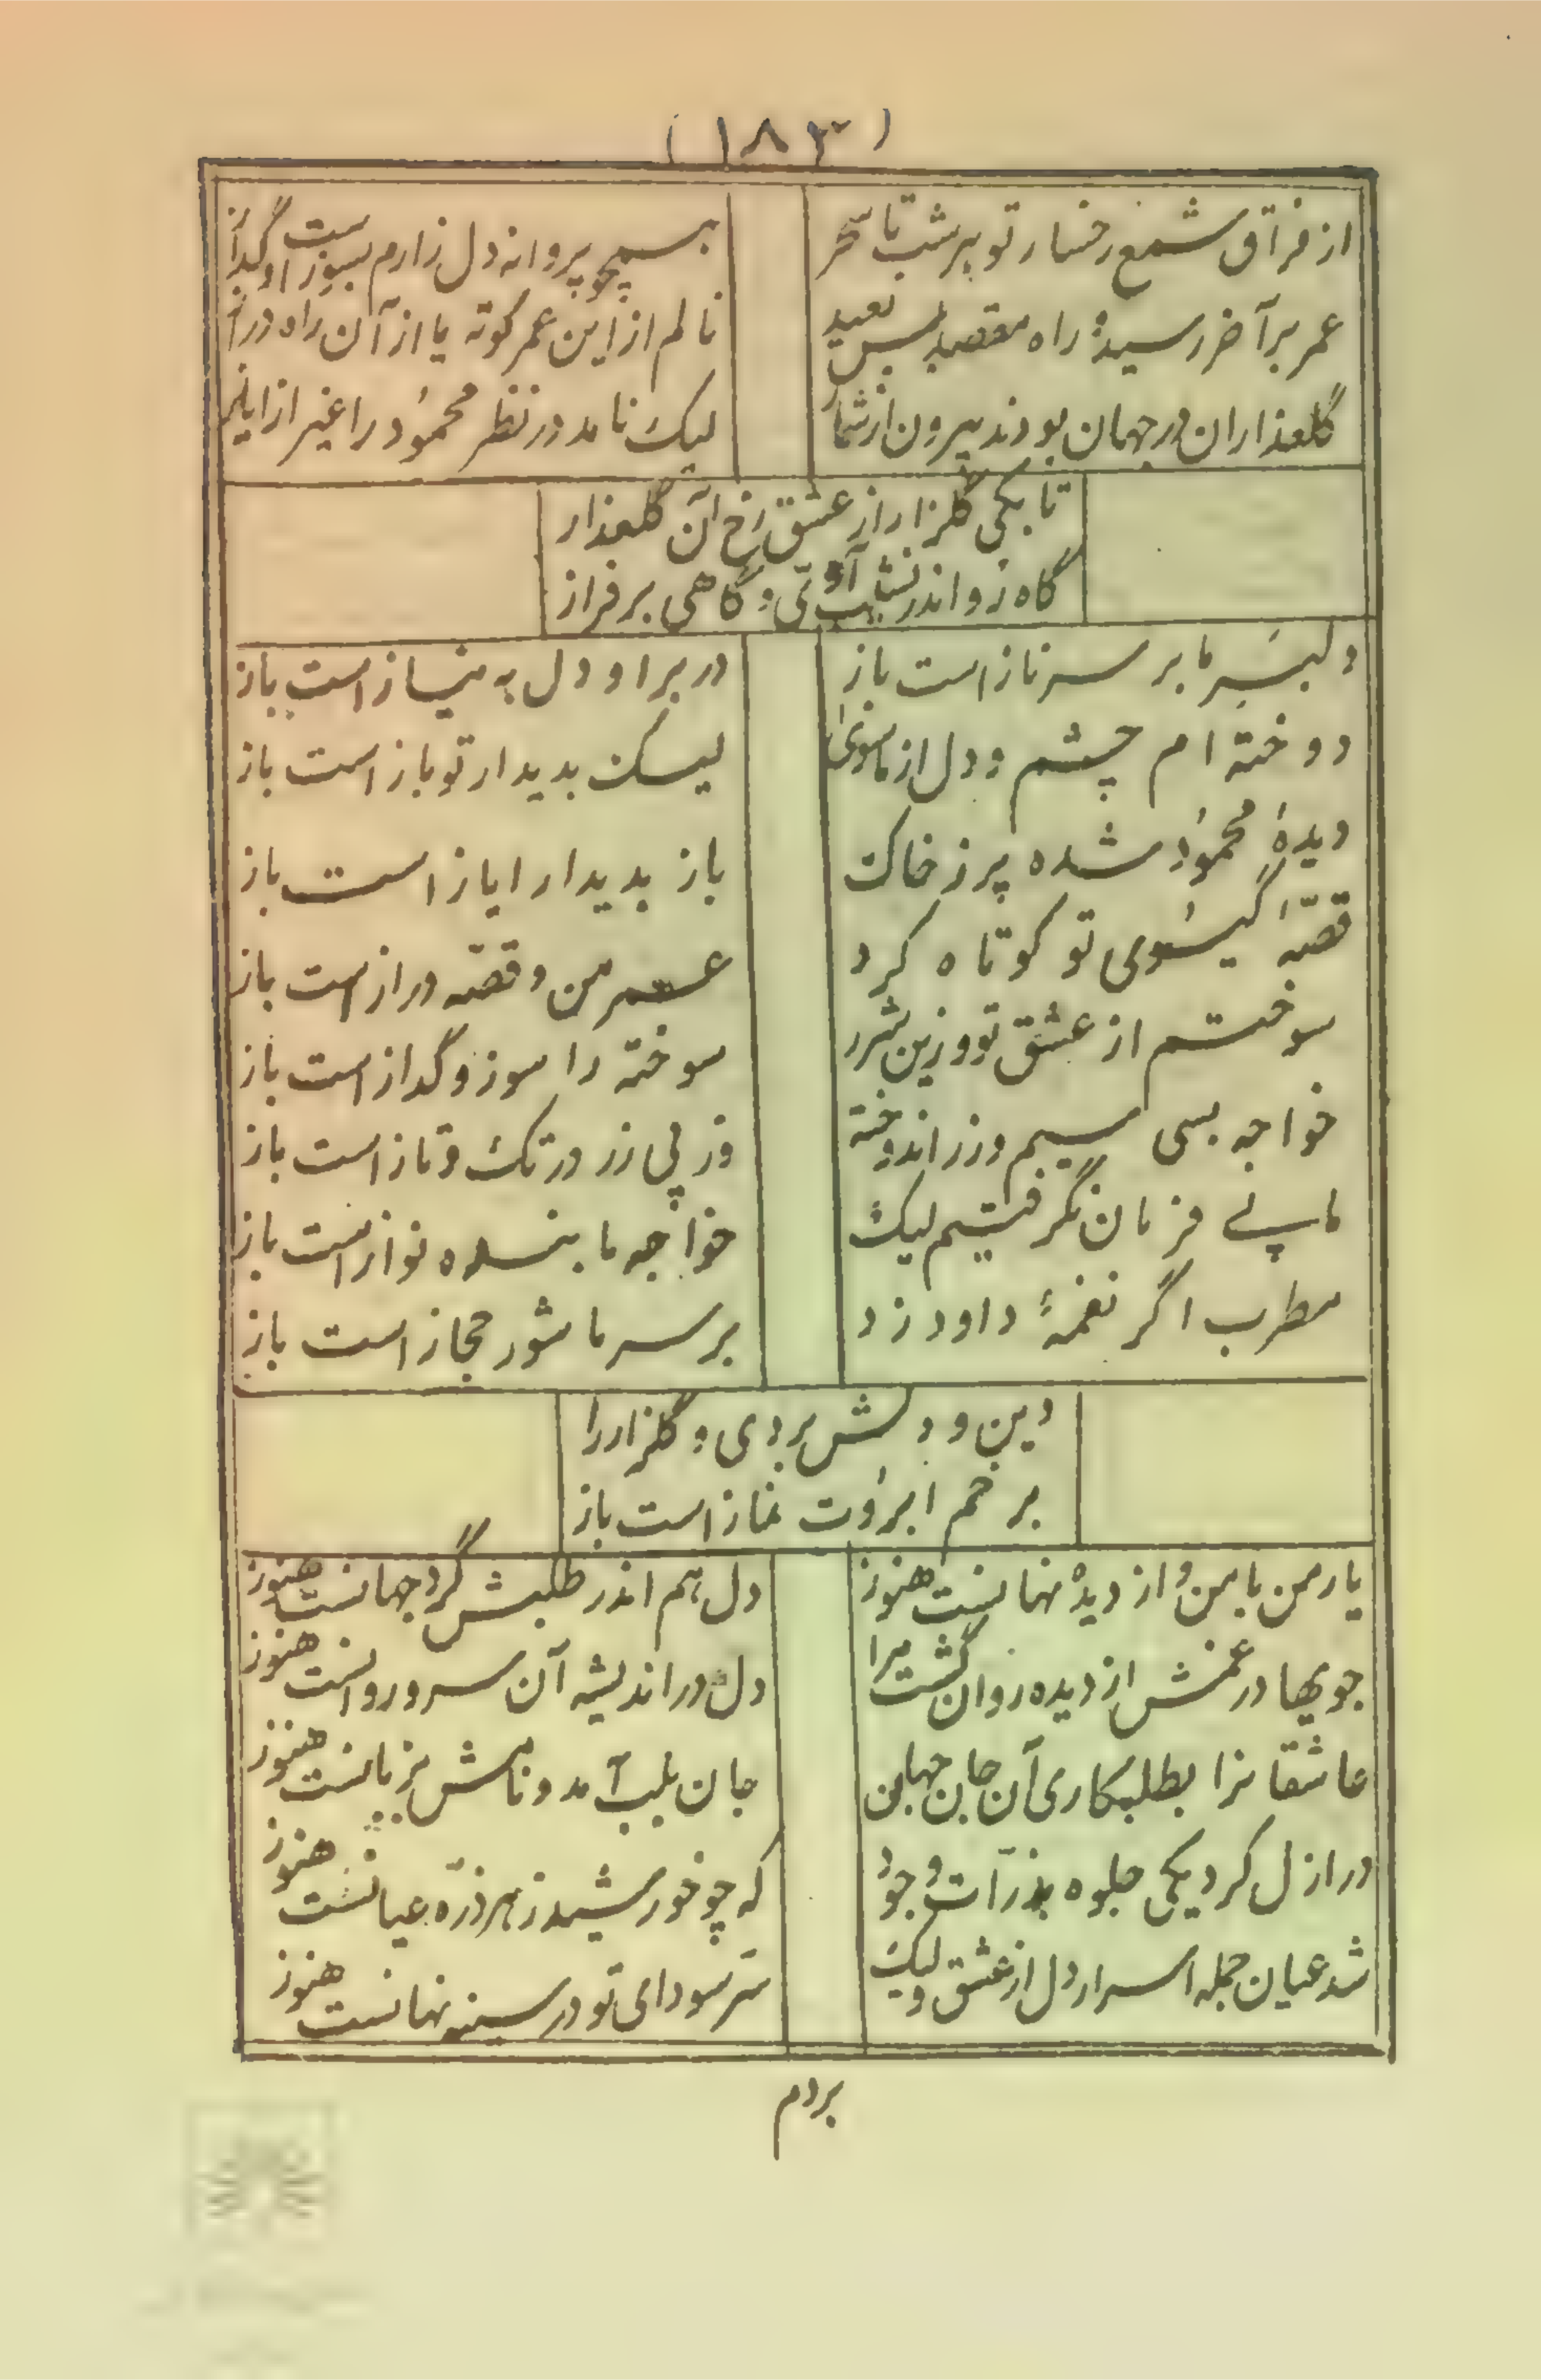 (۱۸۳)
از فراق شمع رخسار تو هر شب تا سحر
همچو پروانه دل زارم بسوز است و گداز
عمر بر آخر رسیده راه مقصد بس بعید
نالم از این عمر کوته یا از آن راه دراز
گلعذاران در جهان بودند بیرون از شمار
لیک نامد در نظر محمود را غیر از ایاز
تا بکی گلزار از عشق رخ آن گلعذار
گاه زو اندر نشیب آوئی و گاهی بر فراز
دلبر ما بر سر ناز است باز
در بر او دل به نیاز است باز
دوخته ام چشم و دل از ماسوی
لیک بدیدار تو باز است باز
دیده محمود شده پر ز خاک
باز بدیدار ایاز است باز
قصّه گیسوی تو کوتاه کرد
عمر من و قصّه دراز است باز
سوختم از عشق تو وزین شرر
سوخته را سوز و گداز است باز
خواجه بسی سیم و زر اندوخته
وز پی زر در تک و تاز است باز
ما پے فرمان نگرفتیم لیک
خواجه ما بنده نواز است باز
مطرب اگر نغمهٔ داود زد
بر سر ما شور حجاز است باز
دین و دلش بردی و گلزار را
بر خم ابروت نماز است باز
یار من با من و از دیده نهانست هنوز
دل بهم اندر طلبش گرد جهانست هنوز
جویها در غمش از دیده روان گشت مرا
دل در اندیشه آن سرو روانست هنوز
عاشقانرا بطلبکاری آن جان جهان
جان بلب آمد و نامش بزبانست هنوز
در ازل کرد یکی جلوه بذرّات وجود
که چو خورشید ز هر ذرّه عیانست هنوز
شد عیان جمله اسرار دل از عشق ولیک
سّر سودای تو در سینه نهانست هنوز
بردم